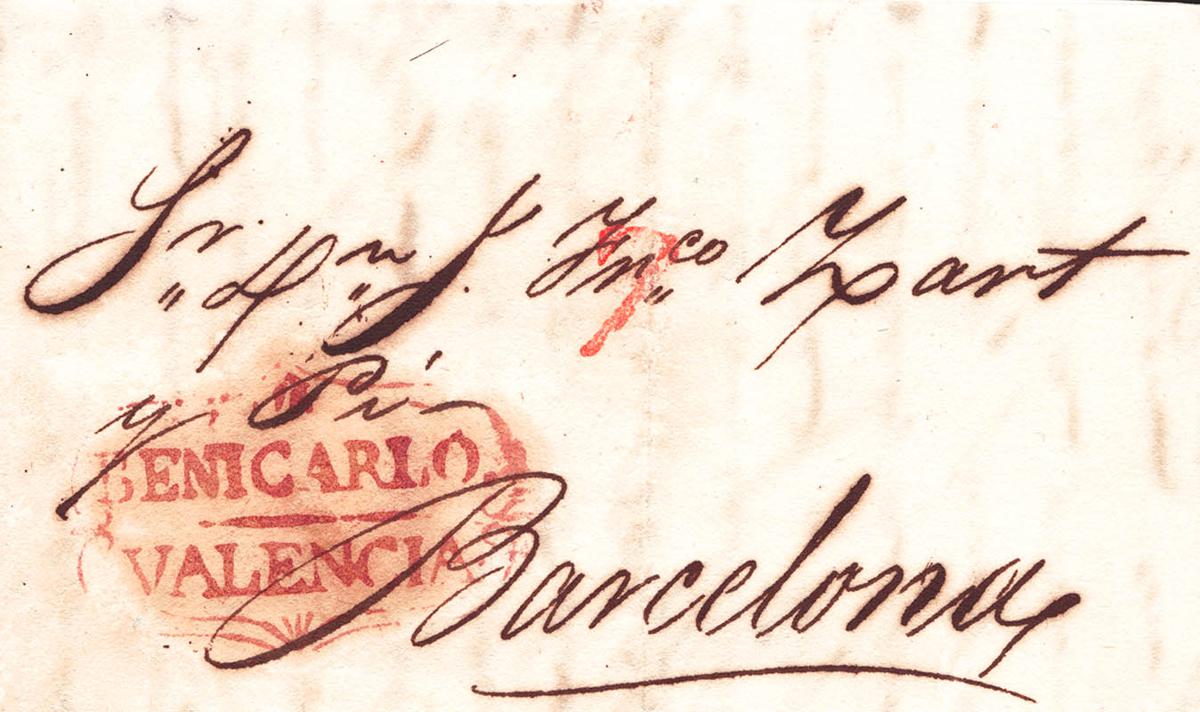 Sr. Dn J. Fnco Xart
7
y Pi
BENICARLO.
VALENCIA
Barcelona